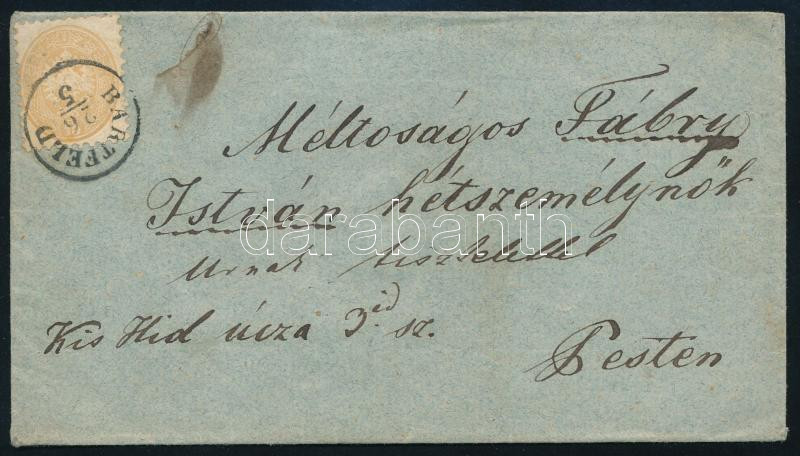 BARTFELD
26/5
Méltoságos Fábry
István hétszemélynök
Urnak tisztelettel
Kis Hid úcza 3id. sz.
Pesten
darabanth